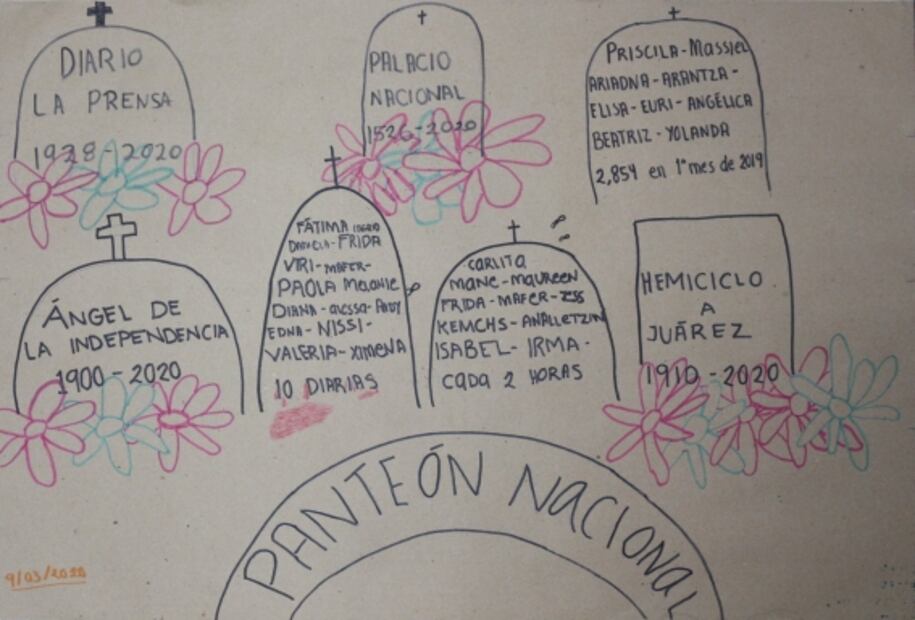 DIARIO
LA PRENSA
1928-2020
PALACIO
NACIONAL
1526-2020
PRISCILA-Massiel
ARIADNA-ARANTZA-
ELISA-EURI-ANGÉLICA
BEATRIZ-YOLANDA
2,854 en 1er mes de 2019
ÁNGEL DE
LA INDEPENDENCIA
1900-2020
FÁTIMA INGRID
DANIELA-FRIDA
VIRI-MAFER-
PAOLA Melanie
DIANA-alessa-Andy
EDNA-NISSI-
VALERIA-XIMENA
10 DIARIAS
CARLITA
MANE-MAUREEN
FRIDA-MAFER-JESS
KEMCHS-ANALLETZIN
ISABEL-IRMA-
CADA 2 HORAS
HEMICICLO
A
JUÁREZ
1910-2020
PANTEÓN NACIONAL
9/03/2020